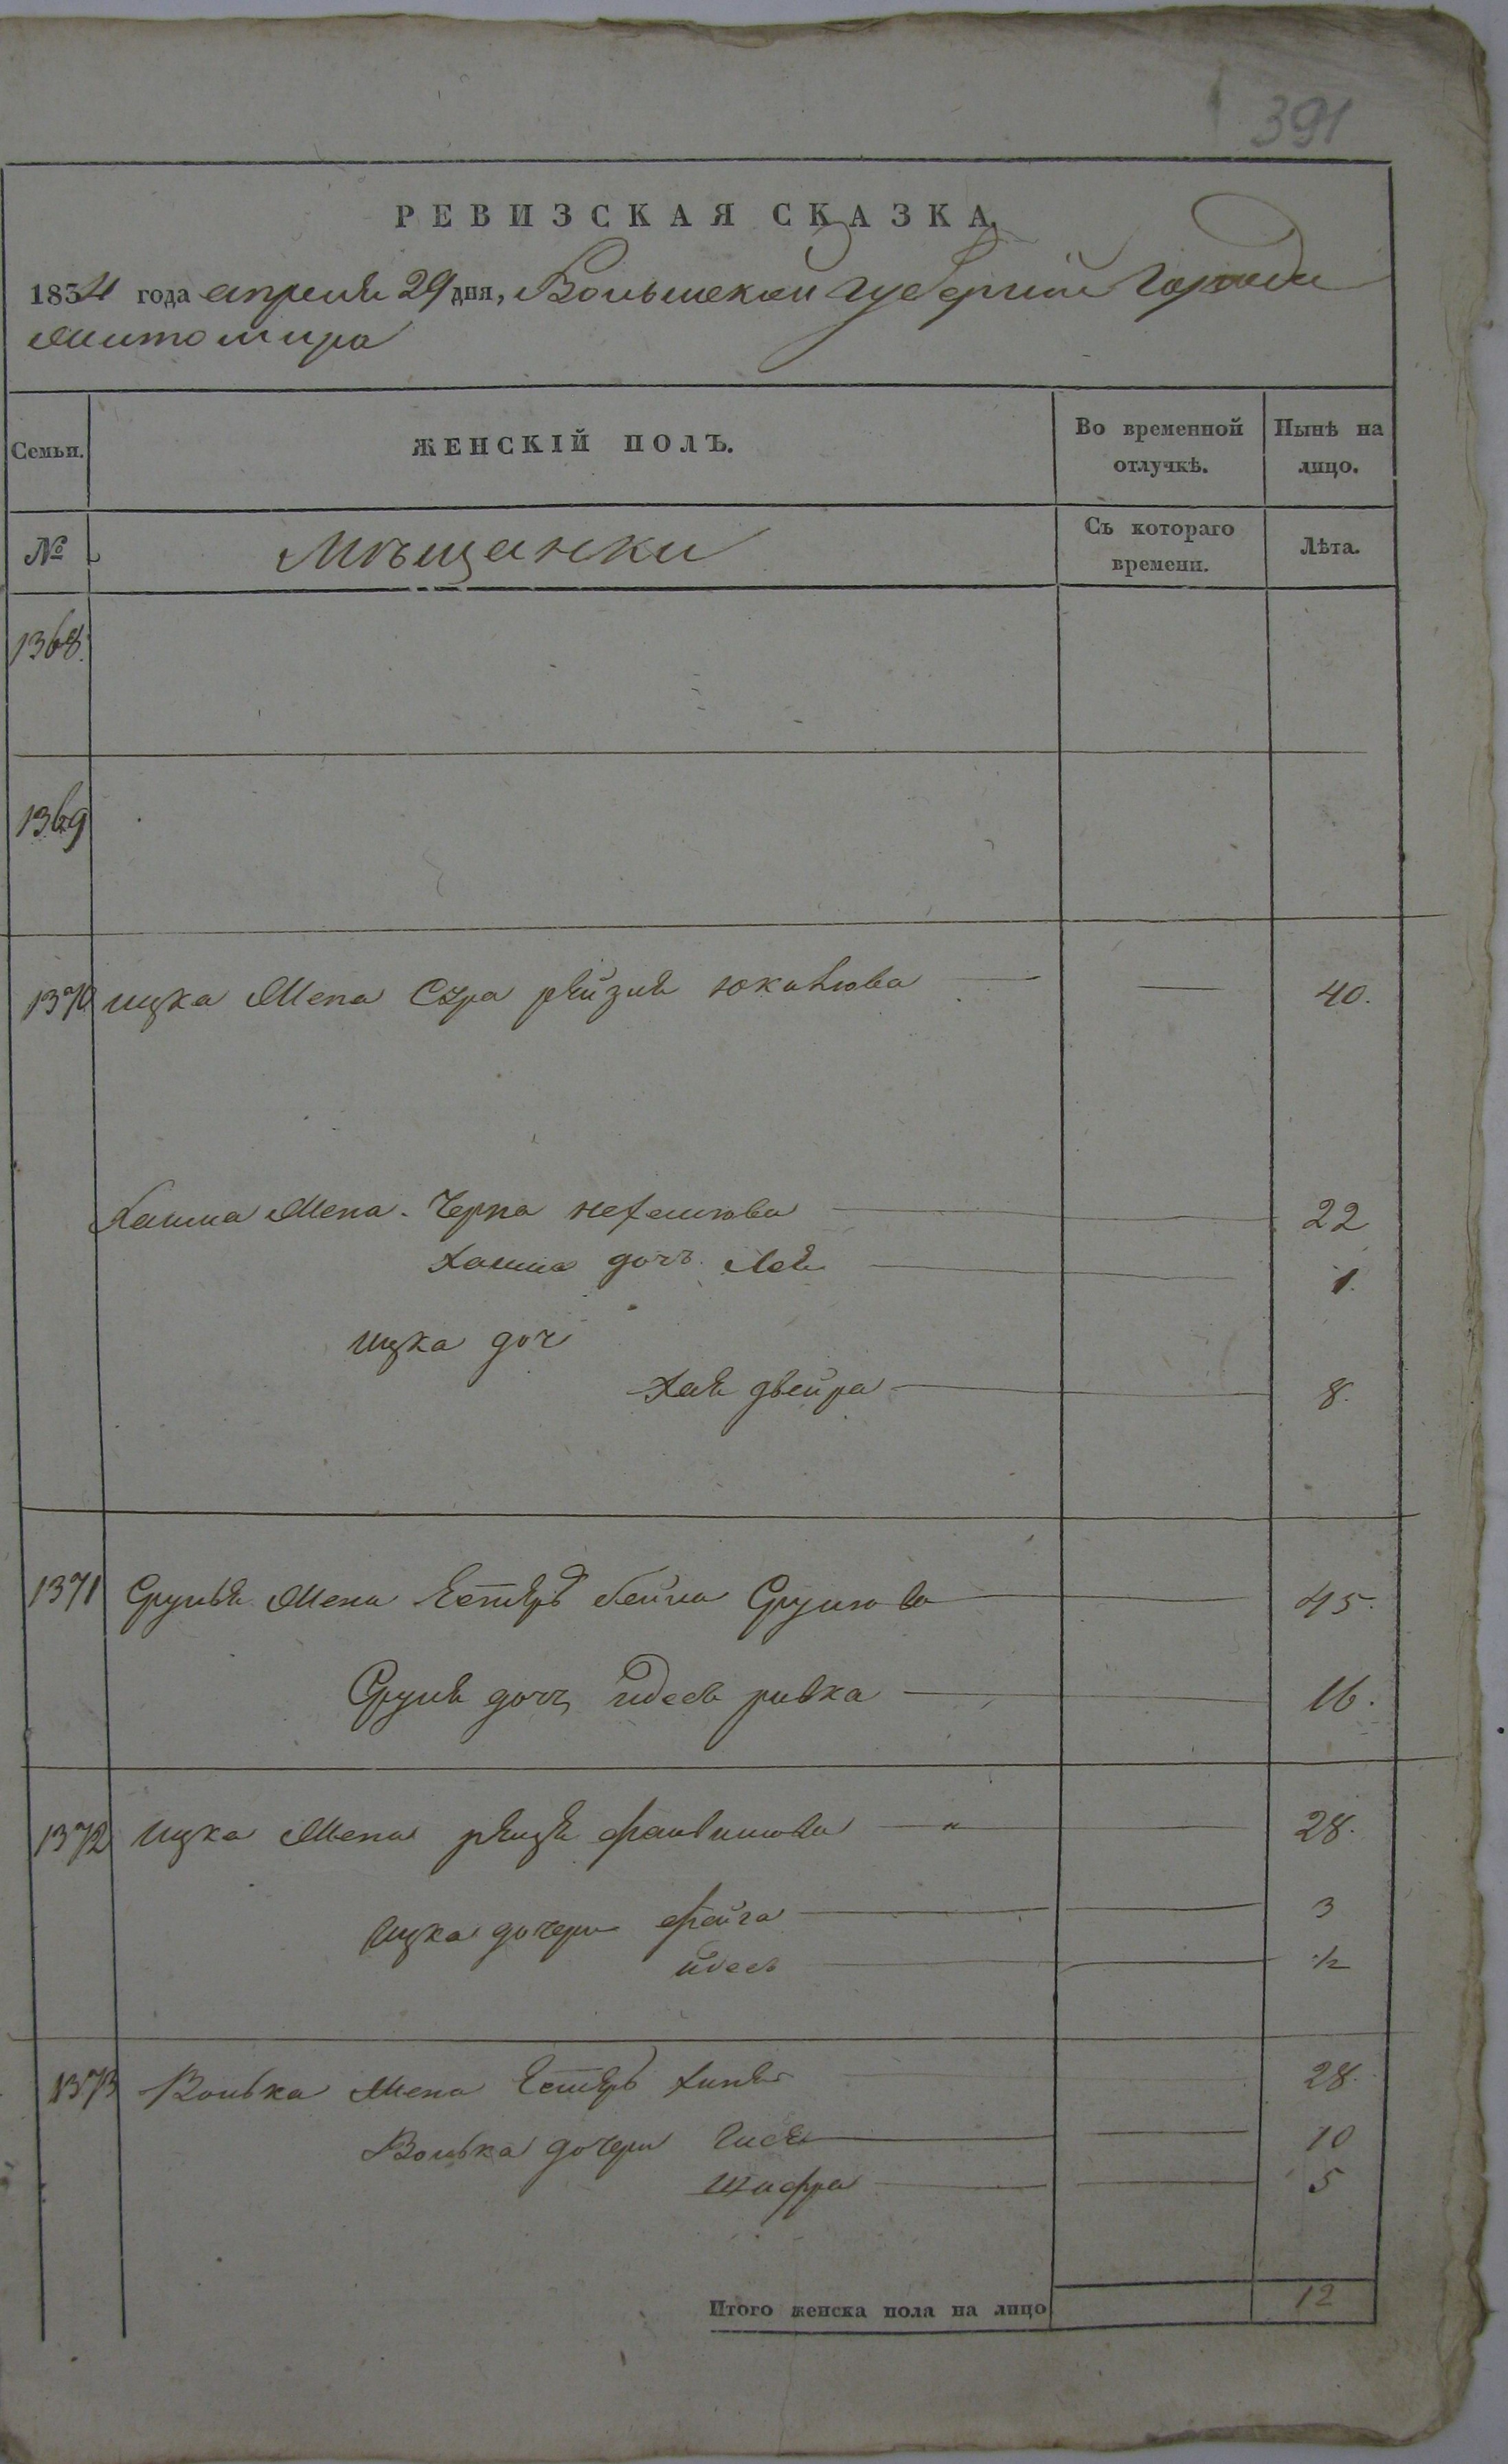 391
РЕВИЗСКАЯ СКАЗКА,
1854 года апреля 29 дня, Волынской губернии города
Житомира
Семьи. ЖЕНСКІЙ ПОЛЪ. Во временной отлучкѣ. Нынѣ на лицо.
№ Мѣщанки Съ котораго времени. Лѣта.
1368.
1369
1370 ицка Жена Сура рейзя — — 40.
Жена Черна — 22
дочь Лея — 1.
ицка доч
хая двейра — 8.
1371 Сруля Жена Естеръ бейла Срулюва — 45.
Сруля дочь идесь ривка — 16.
1372 ицка Жена — „ — 28.
ицка дочери фейга — — 3
идесь — — ½
1373 Волька Жена Естеръ 28.
Волька дочери — — 10
Шифра — — 5
Итого женска пола на лицо 12